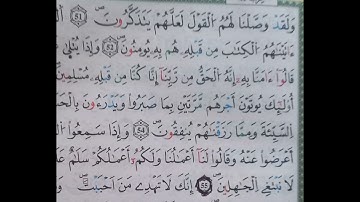 وَلَقَدْ وَصَّلْنَا لَهُمُ اُلْقَوْلَ لَعَلَّهُمْ يَتَذَكَّرُونَ ٥١
ءَاتَيْنَٰهُمُ اُلْكِتَٰبَ مِن قَبْلِهِۦ هُم بِهِۦ يُومِنُونَ ٥٢ وَإِذَا يُتْلَىٰ
قَالُوٓاْ ءَامَنَّا بِهِۦٓ إِنَّهُ اُلْحَقُّ مِن رَّبِّنَآ إِنَّا كُنَّا مِن قَبْلِهِۦ مُسْلِمِينَ
أُوْلَٰٓئِكَ يُوتَوْنَ أَجْرَهُم مَّرَّتَيْنِ بِمَا صَبَرُواْ وَيَدْرَءُونَ
اَلسَّيِّئَةَ وَمِمَّا رَزَقْنَٰهُمْ يُنفِقُونَ ٥٤ وَإِذَا سَمِعُواْ
أَعْرَضُواْ عَنْهُ وَقَالُواْ لَنَآ أَعْمَٰلُنَا وَلَكُمُۥٓ أَعْمَٰلُكُمْ سَلَٰمٌ
لَا نَبْتَغِے اِلْجَٰهِلِينَ ٥٥ إِنَّكَ لَا تَهْدِے مَنَ اَحْبَبْتَ